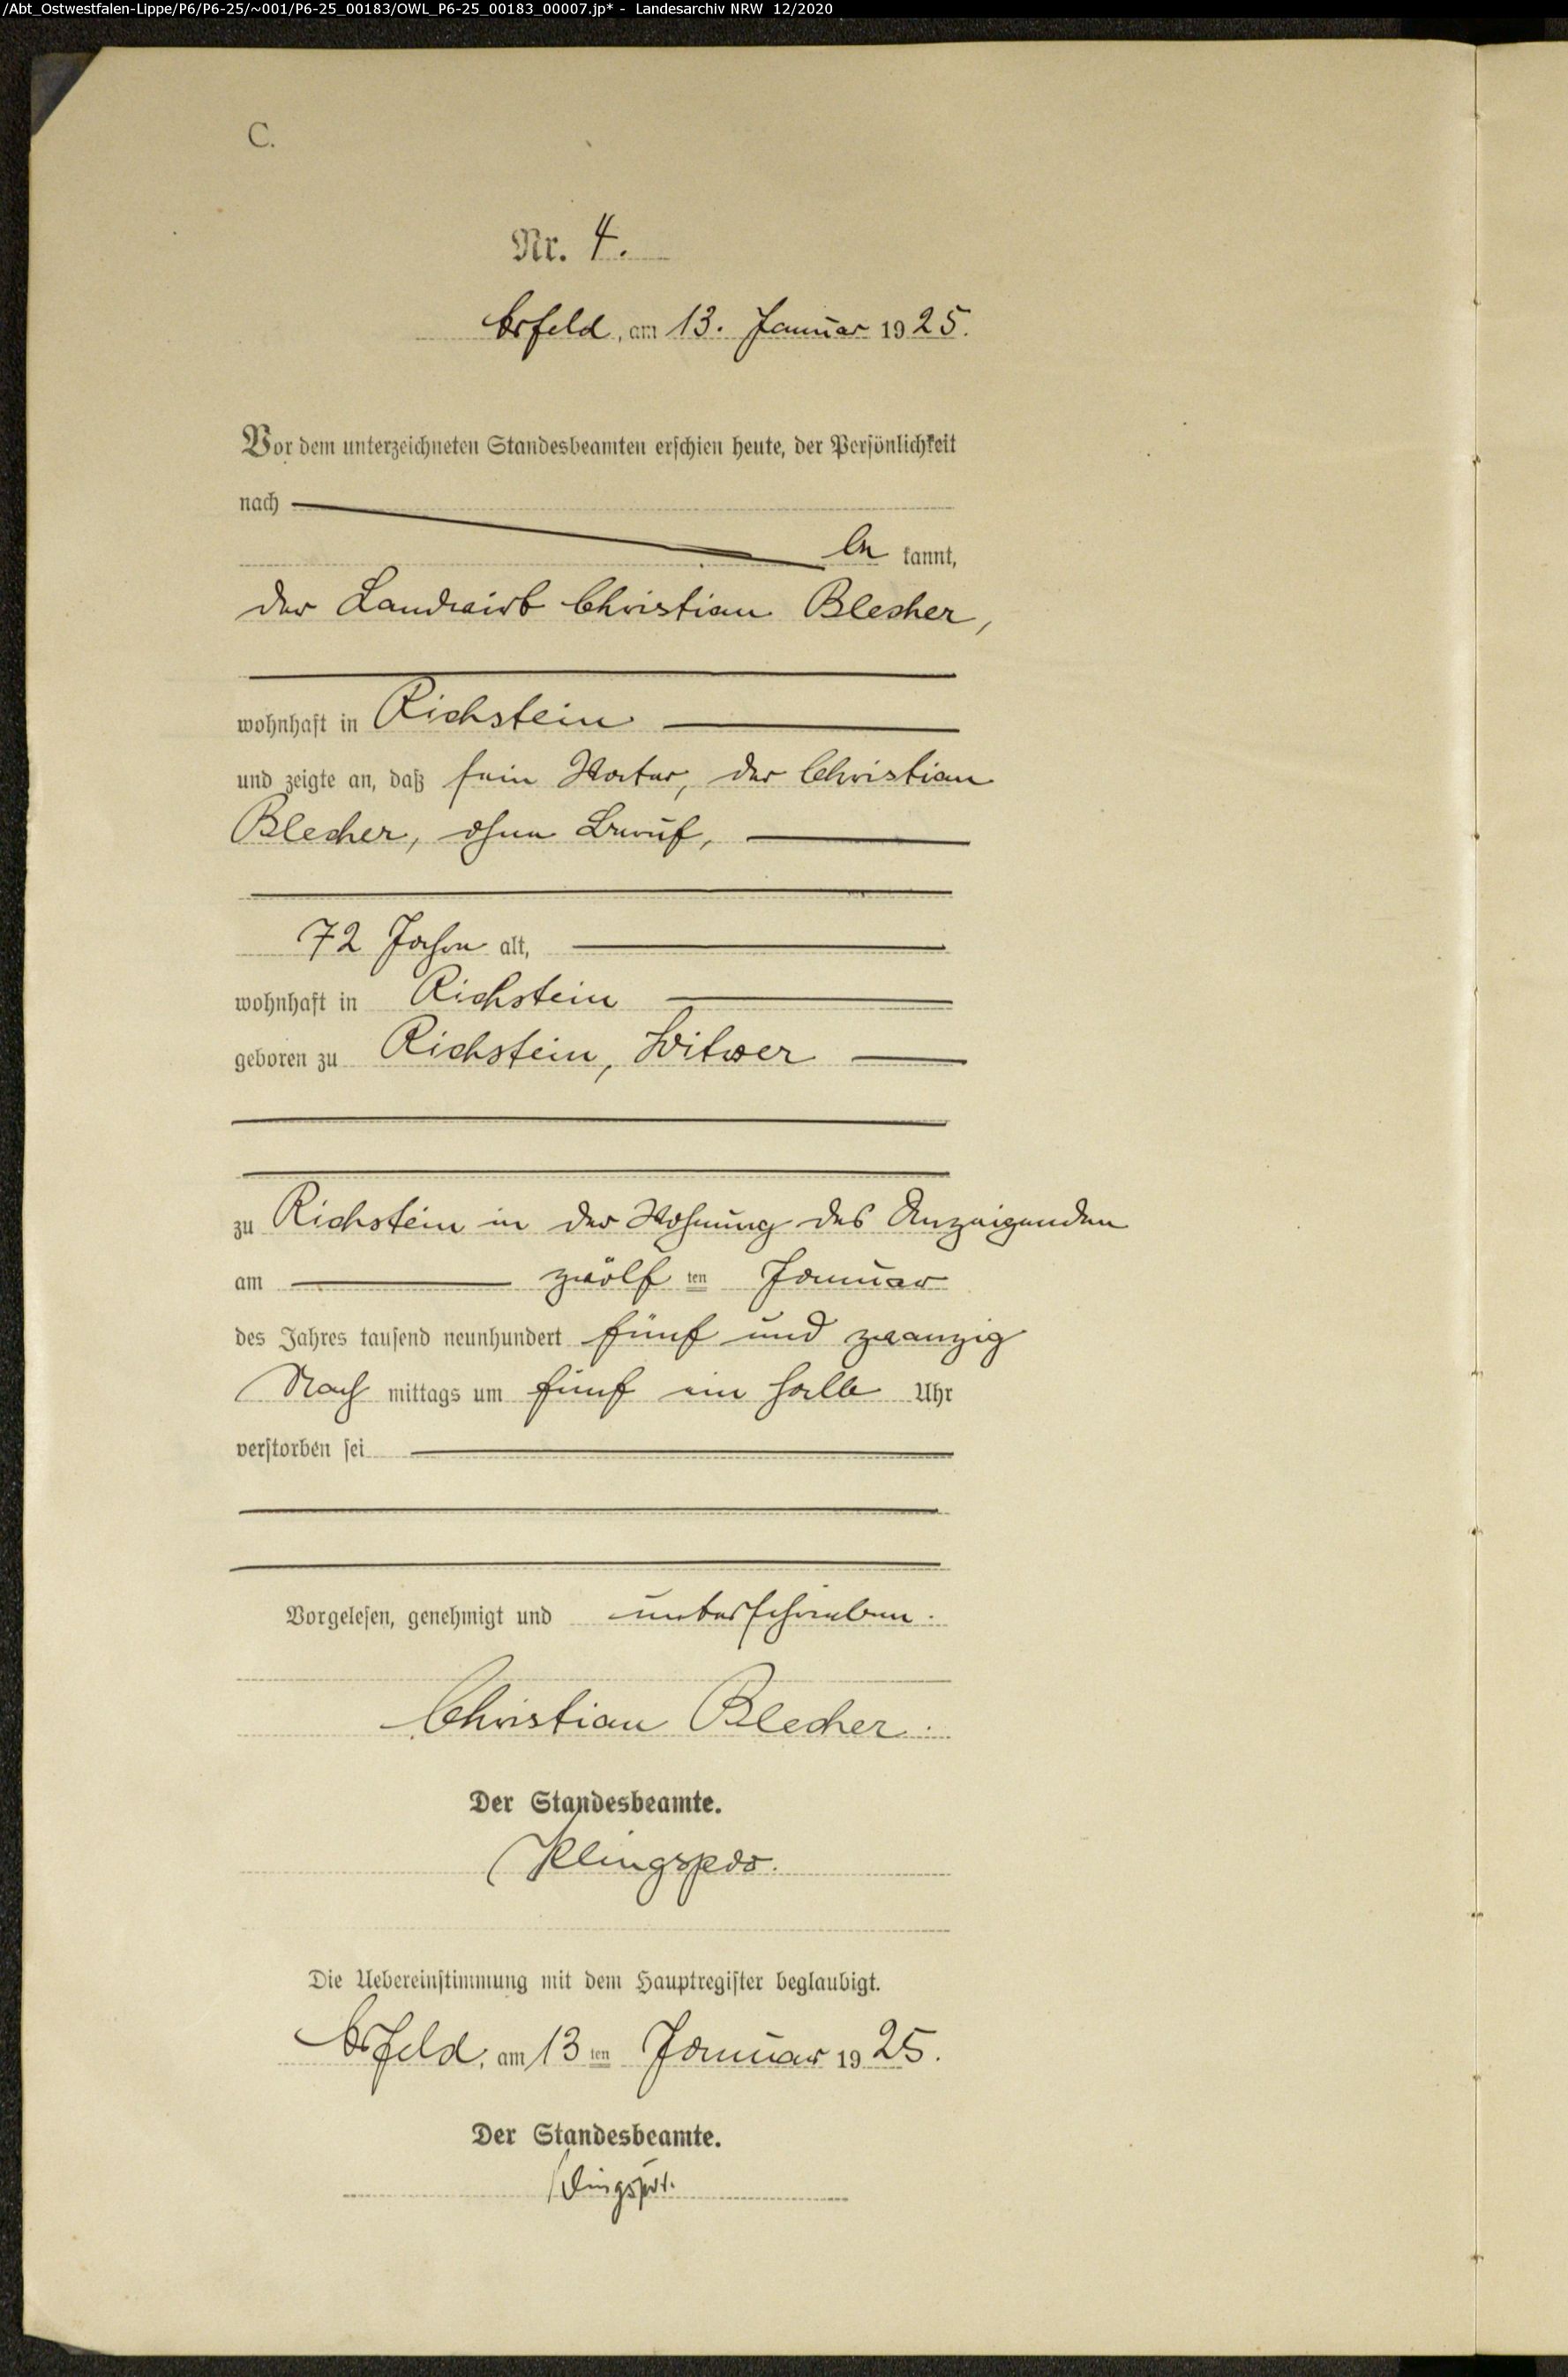 /Abt_Ostwestfalen-Lippe/P6/P6-25/~001/P6-25_00183/OWL_P6-25_00183_00007.jp* - Landesarchiv NRW 12/2020
C.
Nr. 4.
Arfeld, am 13. Januar 1925.
Vor dem unterzeichneten Standesbeamten erschien heute, der Persönlichkeit
nach
be kannt,
der Landwirt Christian Blecher,
wohnhaft in Richstein
und zeigte an, daß sein Vater, der Christian
Blecher, ohne Beruf,
72 Jahre alt,
wohnhaft in Richstein
geboren zu Richstein, Witwer
zu Richstein in der Wohnung des Anzeigenden
am zwölf ten Januar
des Jahres tausend neunhundert fünf und zwanzig
Nach mittags um fünf ein halb Uhr
verstorben sei
Vorgelesen, genehmigt und unterschrieben.
Christian Blecher.
Der Standesbeamte.
Klingspor.
Die Uebereinstimmung mit dem Hauptregister beglaubigt.
Arfeld, am 13 ten Januar 1925.
Der Standesbeamte.
Klingspor.